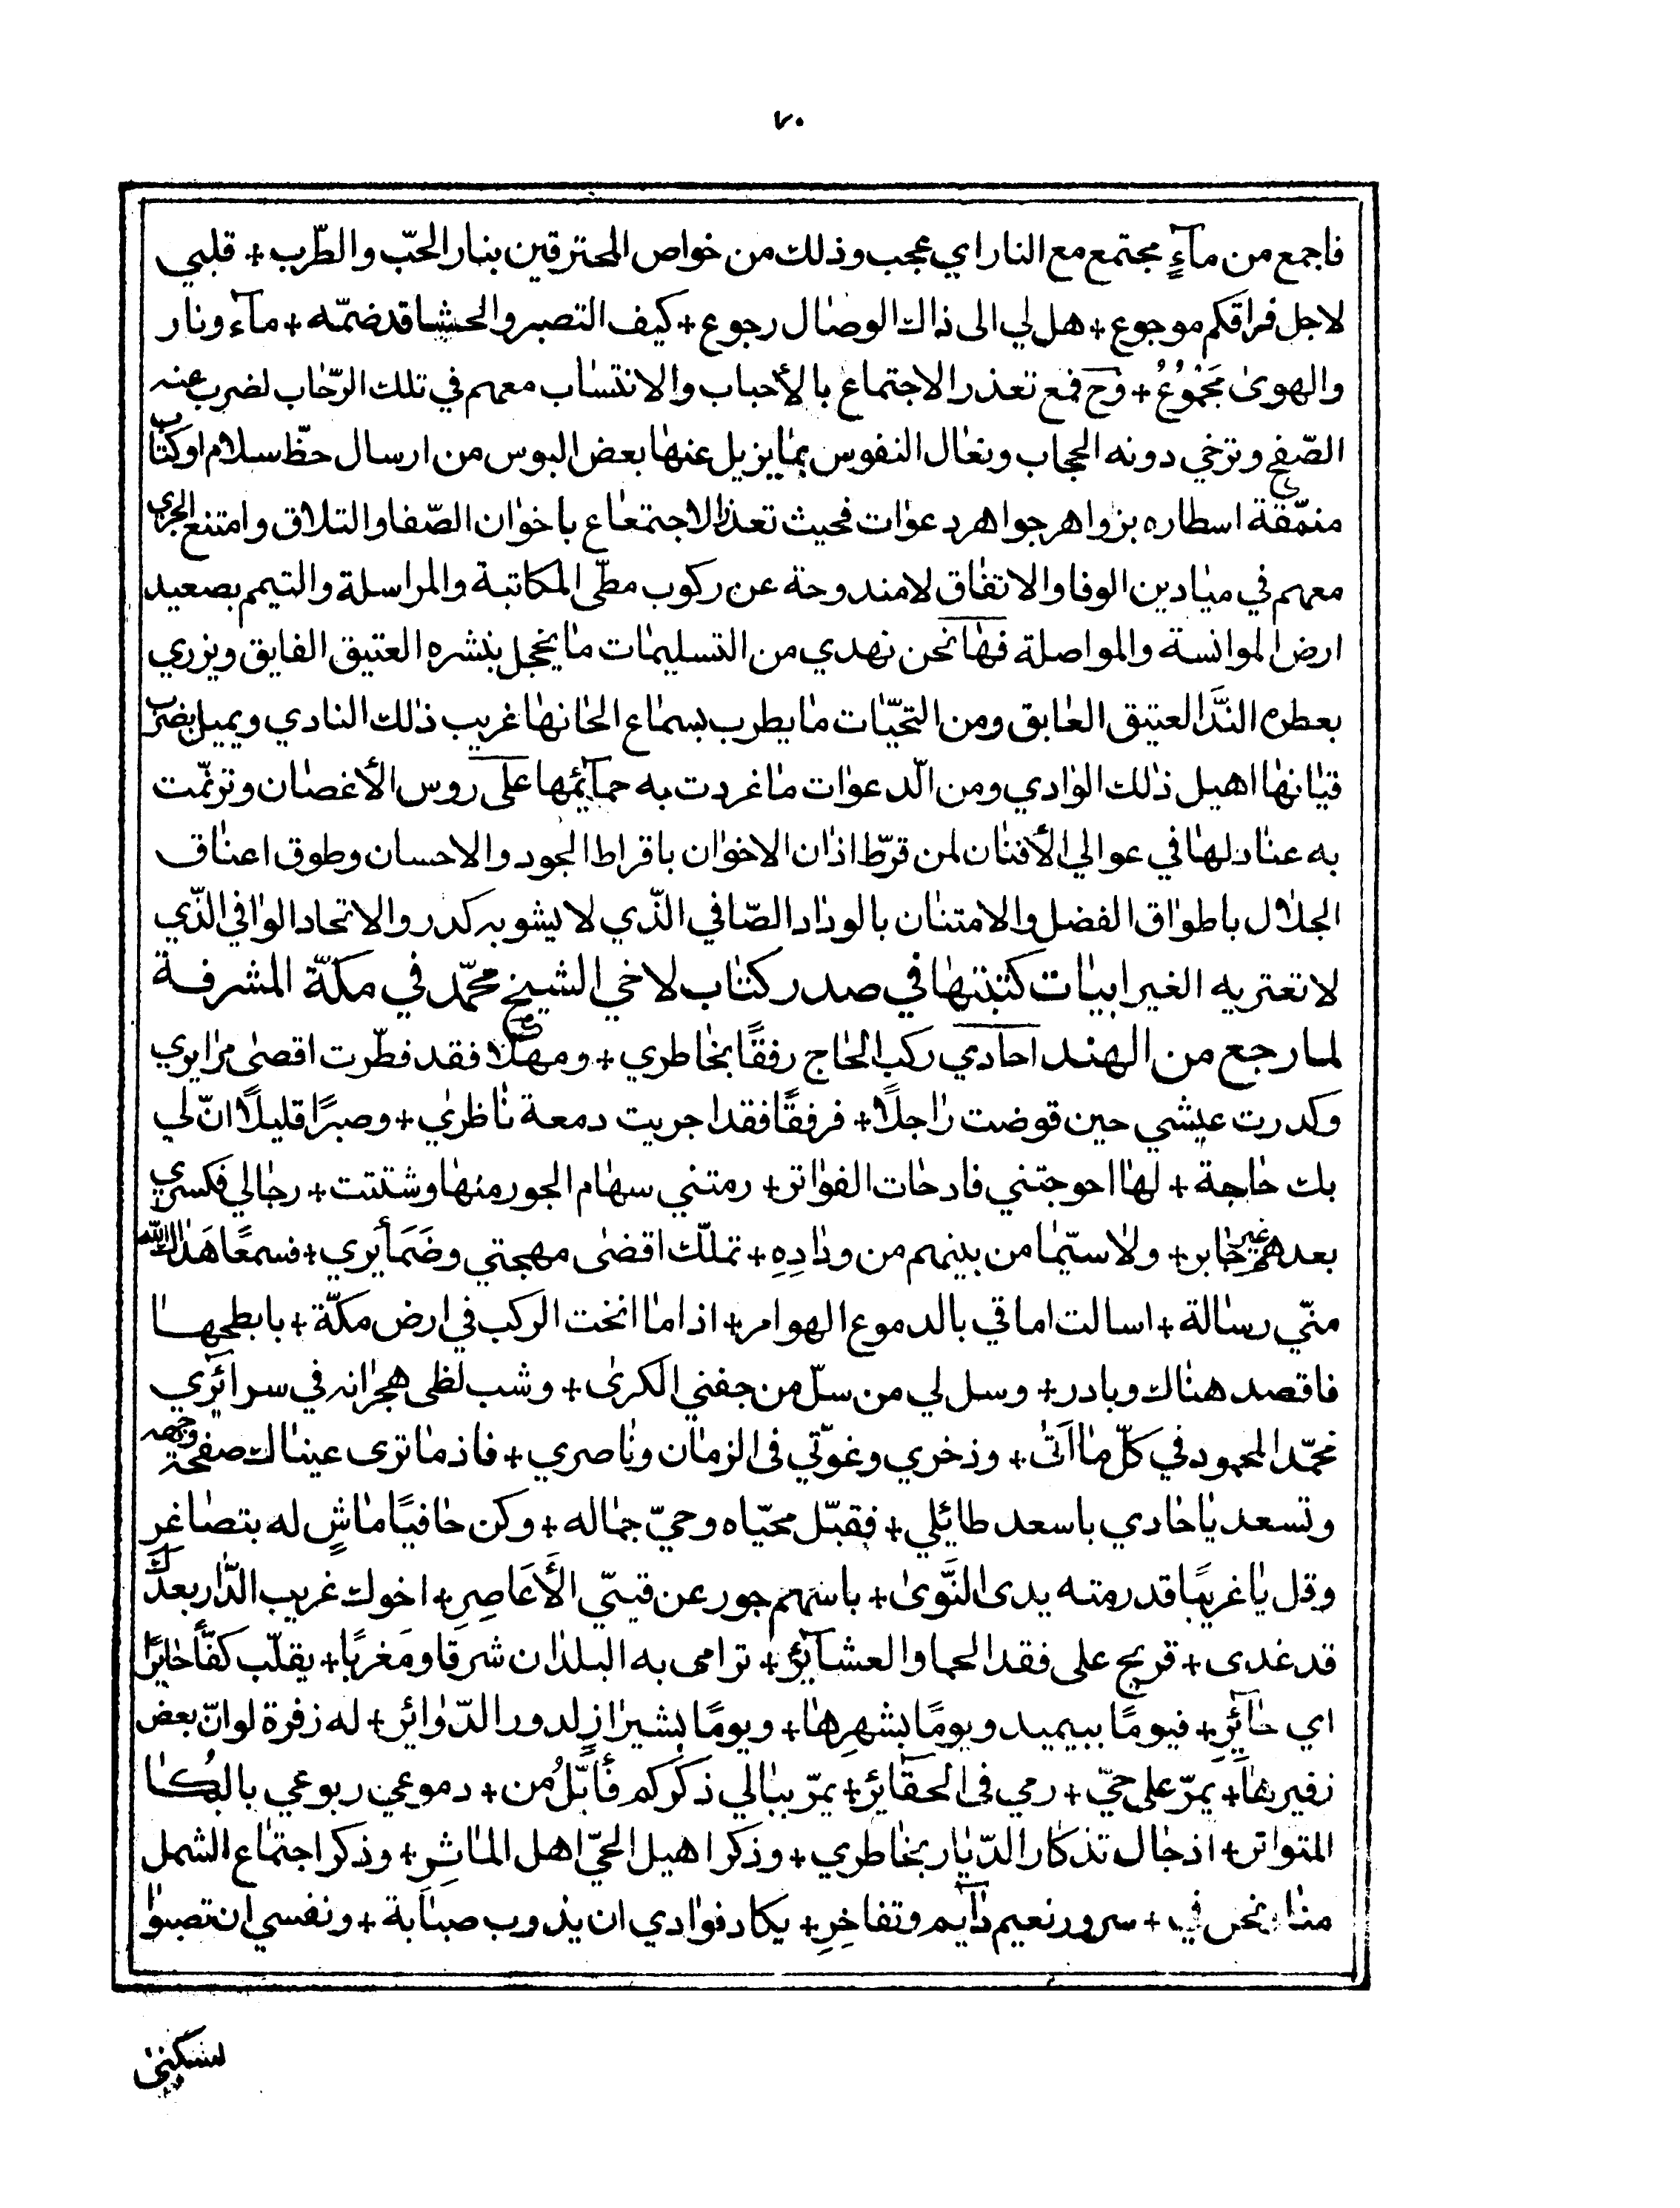 ٧٠
فاجمع من مآءٍ مجتمع مع النار اي عجب وذلك من خواص المحترقين بنار الحبّ والطّرب + قلبي
لاجل فراقكم موجوع + هل لي الى ذاك الوصال رجوع + كيف التصبر والحشا قد ضمّه + مآء ونار
والهوى مَجْمُوُعُ + وح فمع تعذر الاجتماع بالأحباب والانتساب معهم في تلك الرّحاب لضرب عنه
الصّفح ونرخي دونه الحجاب ونعال النفوس بما يزيل عنها بعض البوس من ارسال حظّ سلام اوكتاب
منمّقة اسطاره بزواهر جواهر دعوات فحيث تعذر الاجتماع باخوان الصّفا والتلاق وامتنع الجري
معهم في ميادين الوفا والاتفاق لامندوحة عن ركوب مطّى المكاتبة والمراسلة والتيمم بصعيد
ارض الموانسة والمواصلة فها نحن نهدي من التسليمات ما يخجل بنشره العتيق الفايق ويزري
بعطره النَّدا لعتيق العابق ومن التحيّات ما يطرب بسماع الحانها غريب ذلك النادي ويميل بضرب
قيانها اهيل ذلك الوادي ومن الّدعوات ما غردت به حمآئمها على روس الأغصان وترنّمت
به عنادلها في عوالي الأفنان لمن قرّط اذان الاخوان باقراط الجود والاحسان وطوق اعناق
الجلال باطواق الفضل والامتنان بالوداد الصّافي الّذي لا يشوبه كدر والاتحاد الوافي الّذي
لا تعتريه الغير ابيات كتبتها في صدر كتاب لاخي الشيخ محمّد في مكّة المشرفة
لما رجع من الهند احادي ركب الحاج رفقًا بخاطري + ومهلًا فقد فطّرت اقصى مرايري
وكدرت عيشي حين قوضت راجلًا + فرفقًا فقد اجريت دمعة ناظري + وصبرًا قليلًا انّ لي
بك حاجة + لها احوجتني فادحات الفواتر + رمتني سهام الجور منها وشتتت + رجالي فكسري
بعدهم غير جابر + ولا سيّما من بينهم من ودادِهِ + تملّك اقضى مهجتي وضَمَأيري + فسمعًا هَداك اللّه
منّي رسالة + اسالت اماقي بالدموع الهوامر + اذا ما انخت الركب في ارض مكّة + بابطحها
فاقصد هناك وبادر + وسل لي من سلّ من جفني الكرى + وشب لظى هجرانه في سرائري
محمّد المحمود في كلّ ما اَتى + وذخري وغوّتي فى الزمان وناصري + فاذ ما ترى عيناك صفحة وجهه
وتسعد يا حادي باسعد طائلي + فقبّل محيّاه وحيّ جماله + وكن حافيًا ماشٍ له بتصاغر
وقل يا غريبًا قد رمته يدى النَّوى + باسهم جور عن قيّتي الأَعَاصِرِ + اخوك غريب الدّار بعدكَ
قد غدى + قريح على فقد الحما والعشآئر + ترامى به البلدان شرقا ومغربًا + يقلّب كفّاً حايرًا
اي حآئِرِ + فيومًا ببيميد ويومًا بشهرِها + ويومًا بشيرازٍ لدور الدّوائر + له زفرة لوانّ بعض
زفيرها + يمرّ على حيّ + رمي فى الحقائر + يمرّ ببالي ذكركم فأبّلُ من + دموعي ربوعي بالبُكا
المتواتر + اذ جال تذكار الدّيار بخاطري + وذكر اهيل الحيّ اهل الماثِرِ + وذكر اجتماع الشمل
منا ونحن في + سرور نعيم دآيم وتفاخِرِ + يكاد فوادي ان يذوب صبابة + ونفسي ان تصبوا